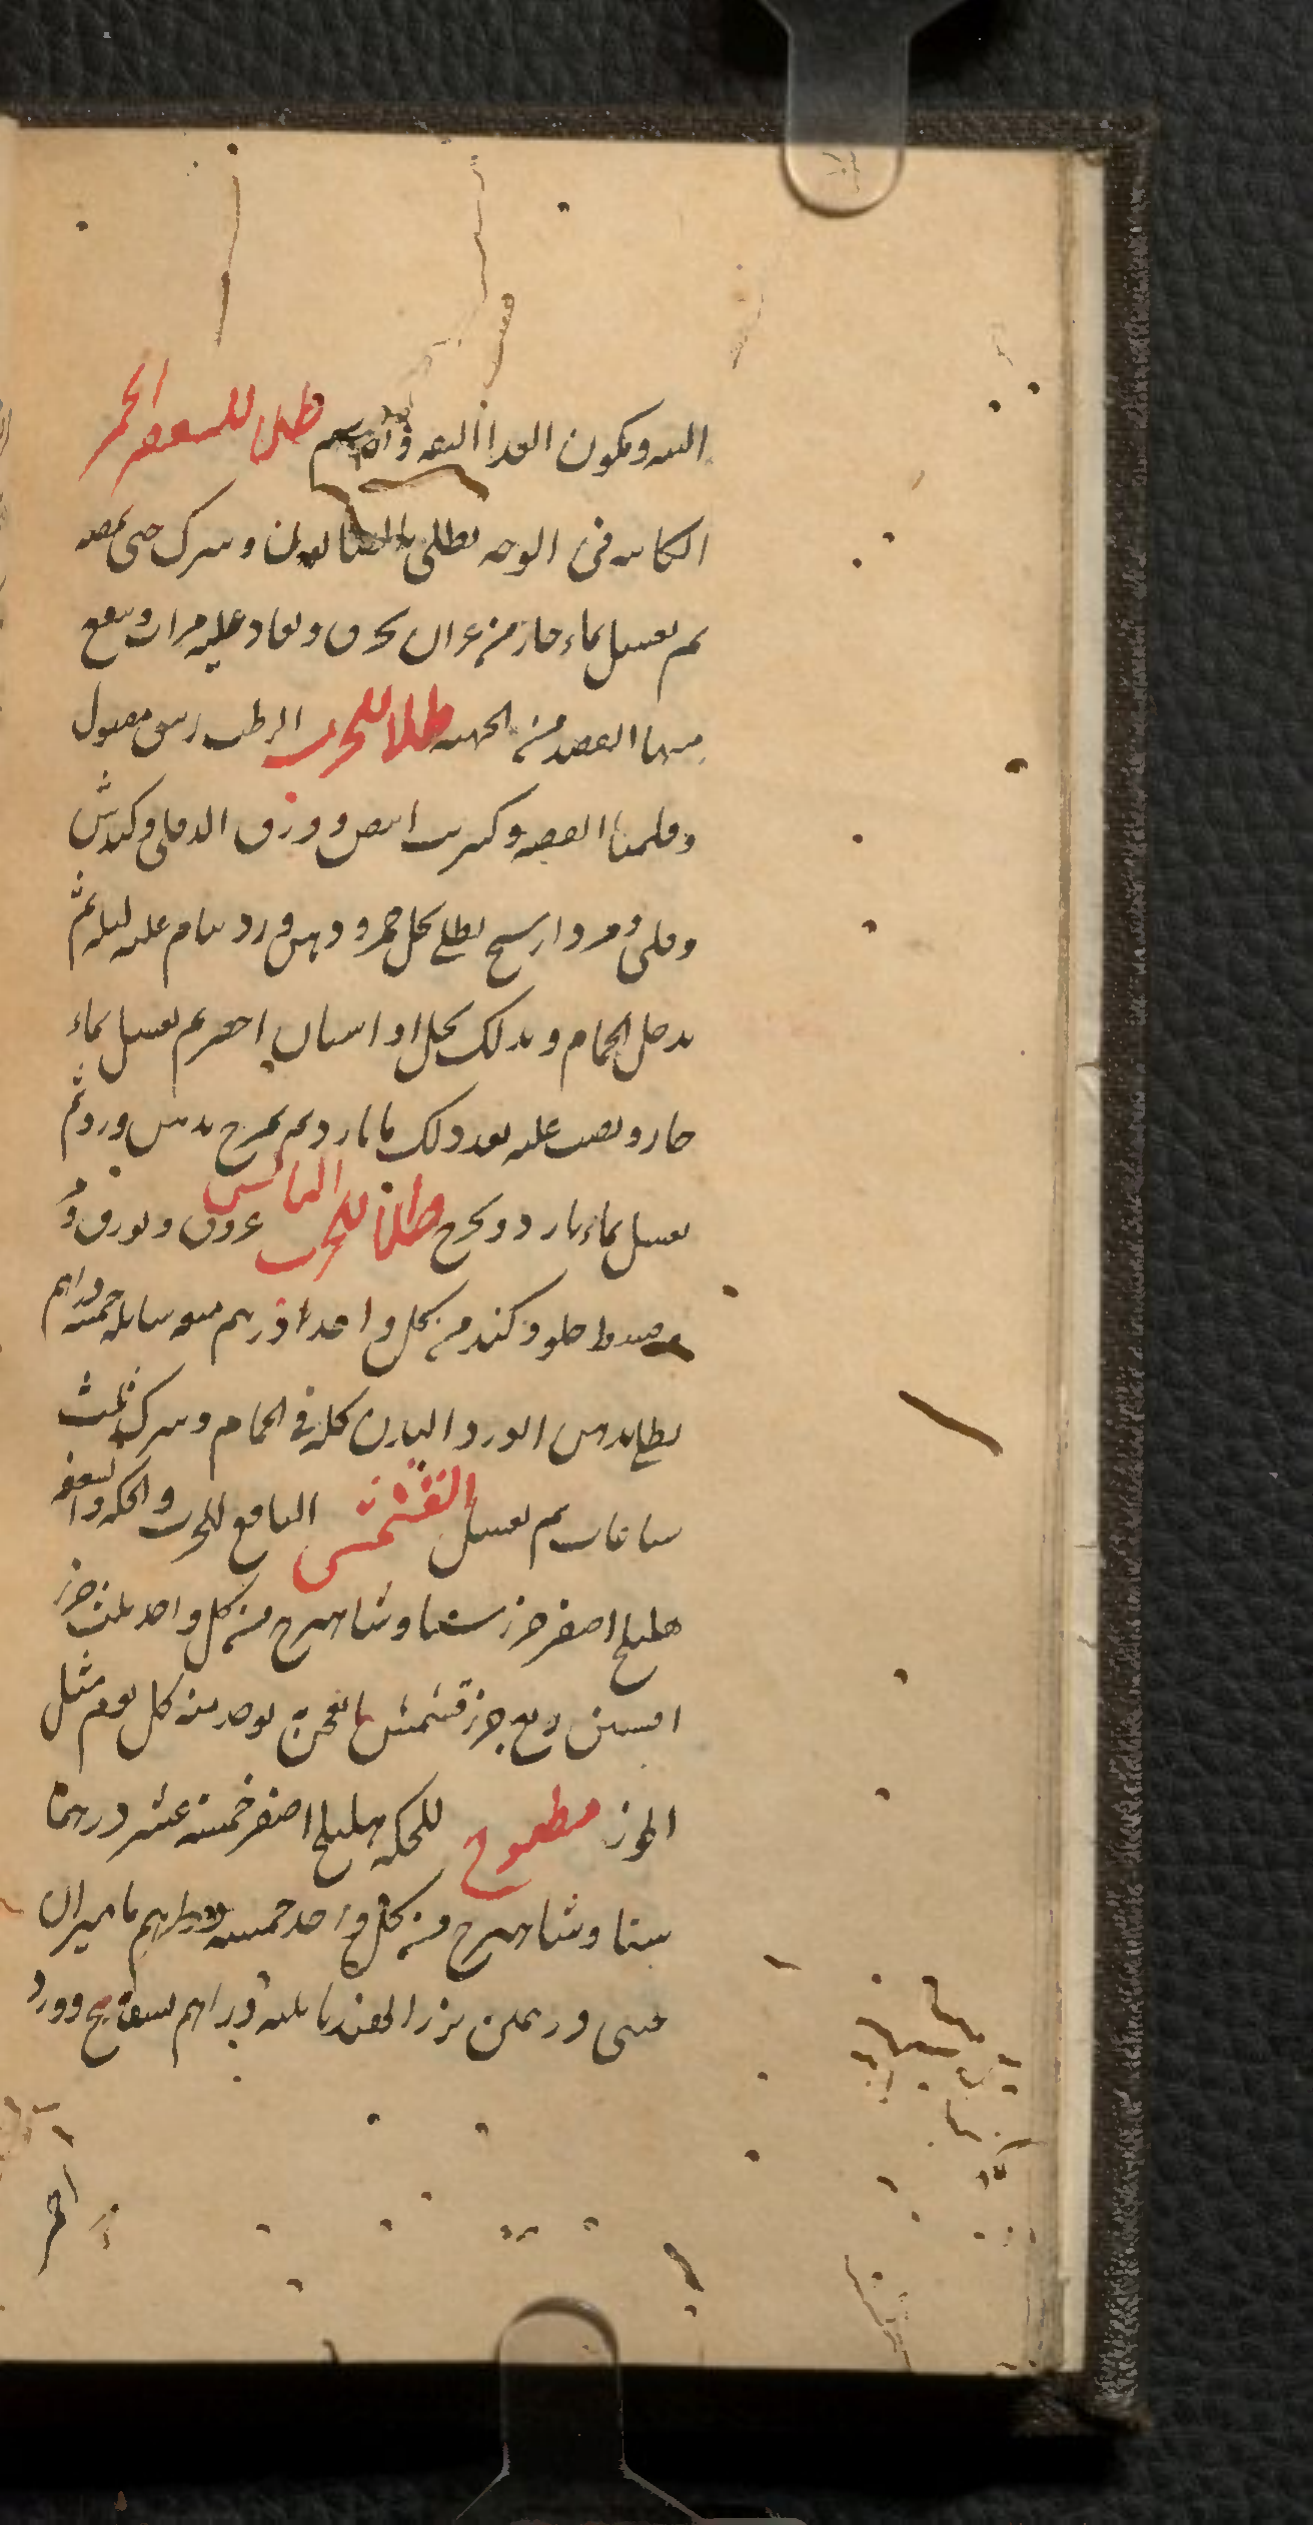 اليه ويكون الغدا اليه طلا للسعفه الحمر
الكاينه في الوجه يطلى بالصابون ويترك حتى
ثم يغسل بماء حار من غير ان يحرق ويعاد عليه مرات وينفع
منها الفصد من الجبهه طلا للجرب الرطب زيبق مقتول
وقليميا الفضه وكبريت ابيض وورق الدفلى وكندش
وقلى ومرداسنج يطلى بخل خمر ودهن ورد ينام عليه ليله ثم
يدخل الحمام ويدلك بخل او اسنان اخضر ثم يغسل بماء
حار ويصب عليه بعد ذلك ماء بارد ثم يمرخ بدهن ورد ثم
يغسل بماء بارد ويخرج طلا للجرب اليابس عروق وبورق و
وقسط حلو وكندس من كل واحد درهم ميعه سايله خمسه دراهم
يطلى بدهن الورد البدن كله في الحمام ويترك ثلث
ساعات ثم يغسل القشمش النافع للجرب والحكه والسعفه
هليلج اصفر جز سنا وشاهترج من كل واحد ثلث جز
افسنتين ربع جز قشمش ما يعجن به يوخذ منه كل يوم مثل
الجوز مطبوخ للحكه هليلج اصفر خمسه عشر درهما
سنا وشاهترج من كل واحد خمسه دراهم ماميران
صينى درهمين بزر الهندبا ثلثه دراهم بسفايج وورد
احمر